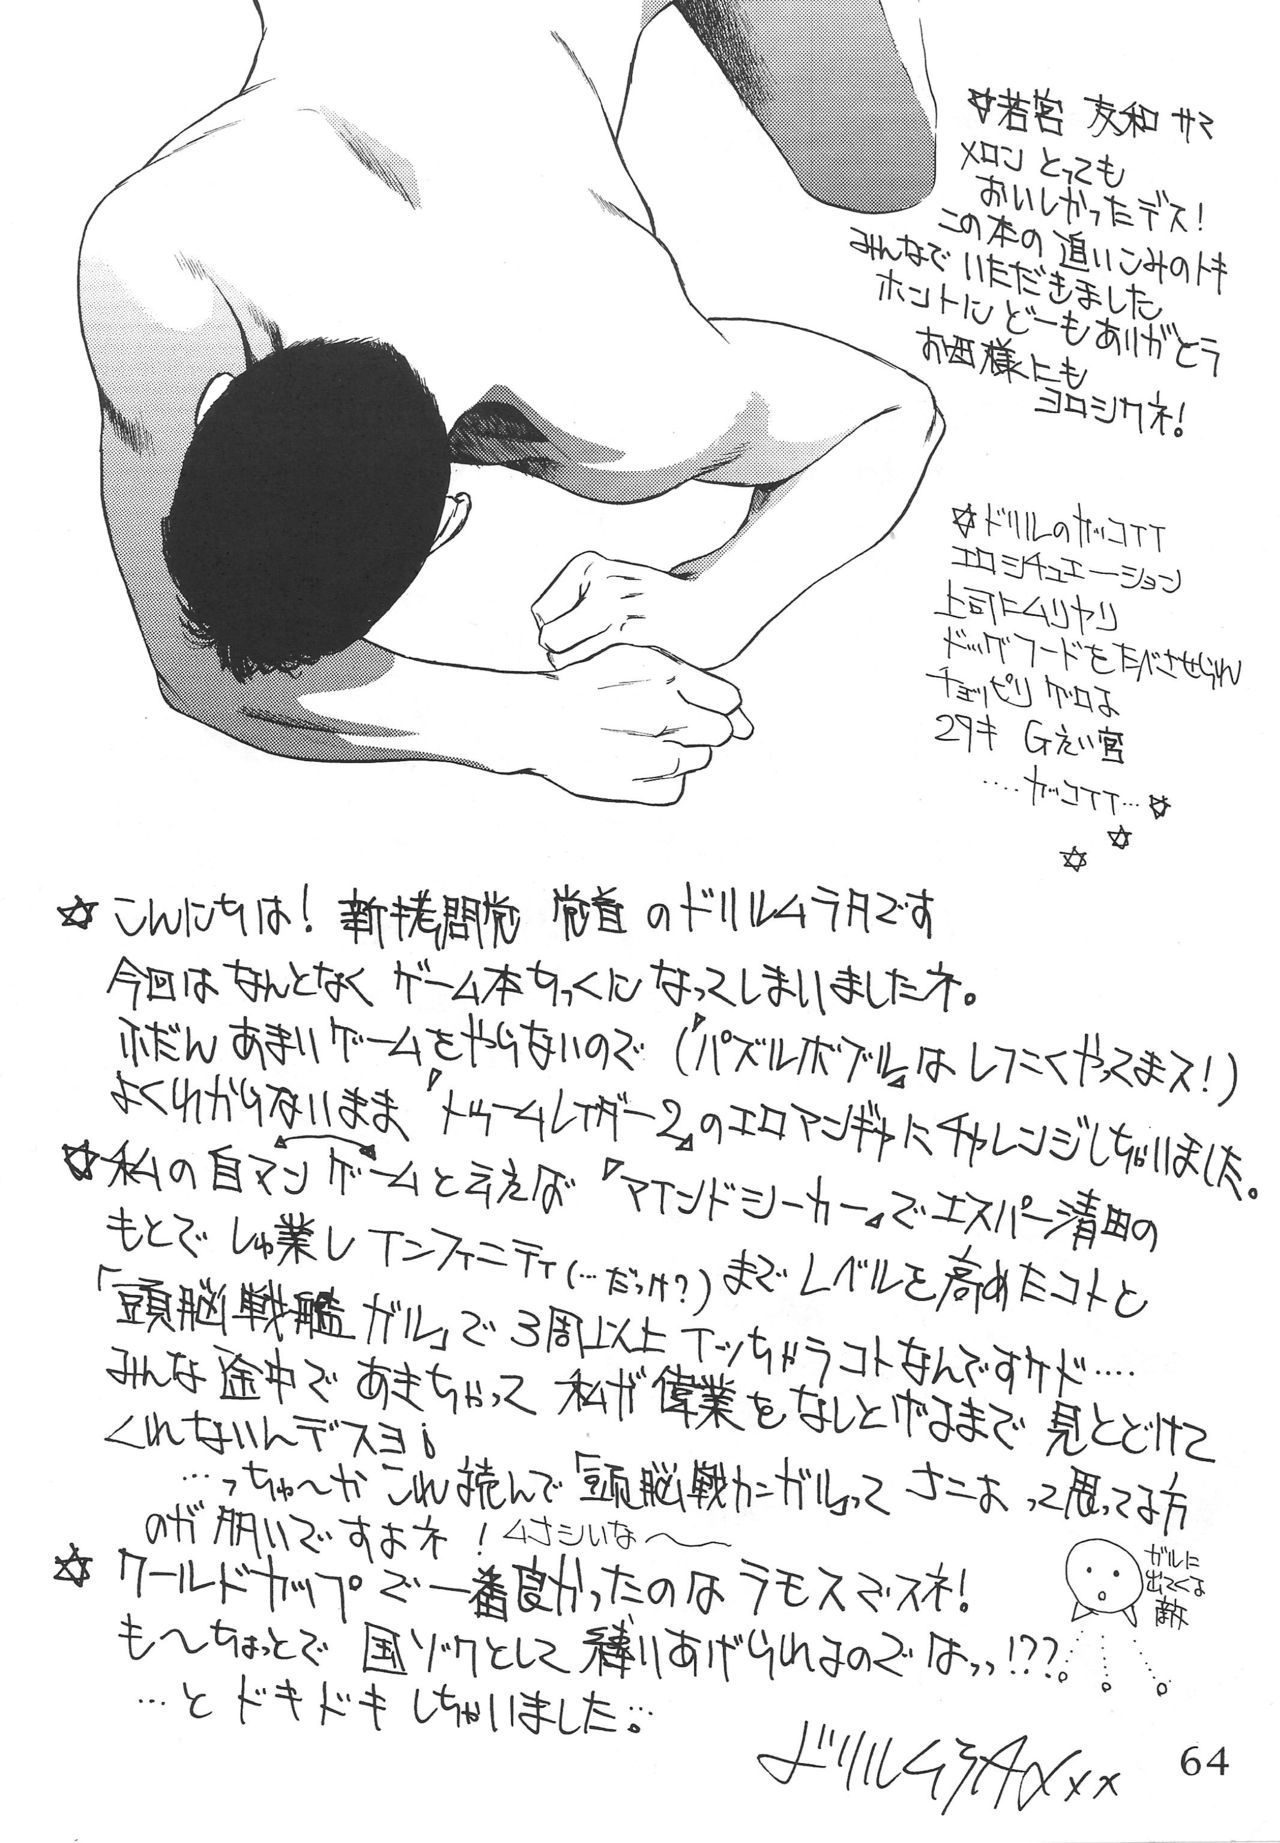 ☆若宮 友和 サマ
メロン とっても
おいしかったデス!
この本の 追いこみのトキ
みんなで いただきました
ホントに どーもありがとう
お母様にも
ヨロシクネ!
☆ドリルのカッコイイ
エロシチュエーション
上司にムリヤリ
ドッグフードをたべさせられ
チョッピリゲロる
29才
....カッコイイ...☆
☆
☆
☆こんにちは! 新拷問党 党首 のドリルムラタです
今回は なんとなく ゲーム本ちっくに なってしまいましたネ。
ふだん あまりゲームをやらないので (『パズルボブル』は しつこくやってまス!)
よくわからないまま『トゥームレイダー2』のエロマンギャにチャレンジしちゃいました。
☆私の 自マン ゲームと 云えば 『マインドシーカー』で エスパー清田の
もとで しゅ業し インフィニティ(…だっけ?) まで レベルを高めたコトと
「頭脳戦艦 ガル」で 3周以上 イッちゃうコトなんですケド‥‥
みんな 途中で あきちゃって 私が偉業を なしとげるまで 見とどけて
くれないんデスヨ¡
…っちゅ〜か これ 読んで「頭脳戦カンガル」って なによって思ってる方
のが多いですよネ! ムナシいな〜
☆ワールドカップで 一番良かったのは ラモスでスネ!
も〜ちょっとで 国ゾクとして 祭りあげられるのでは っっ!???。
…と ドキドキ しちゃいました。
ガルに
出てくる
敵
ドリルムラタxxx
64